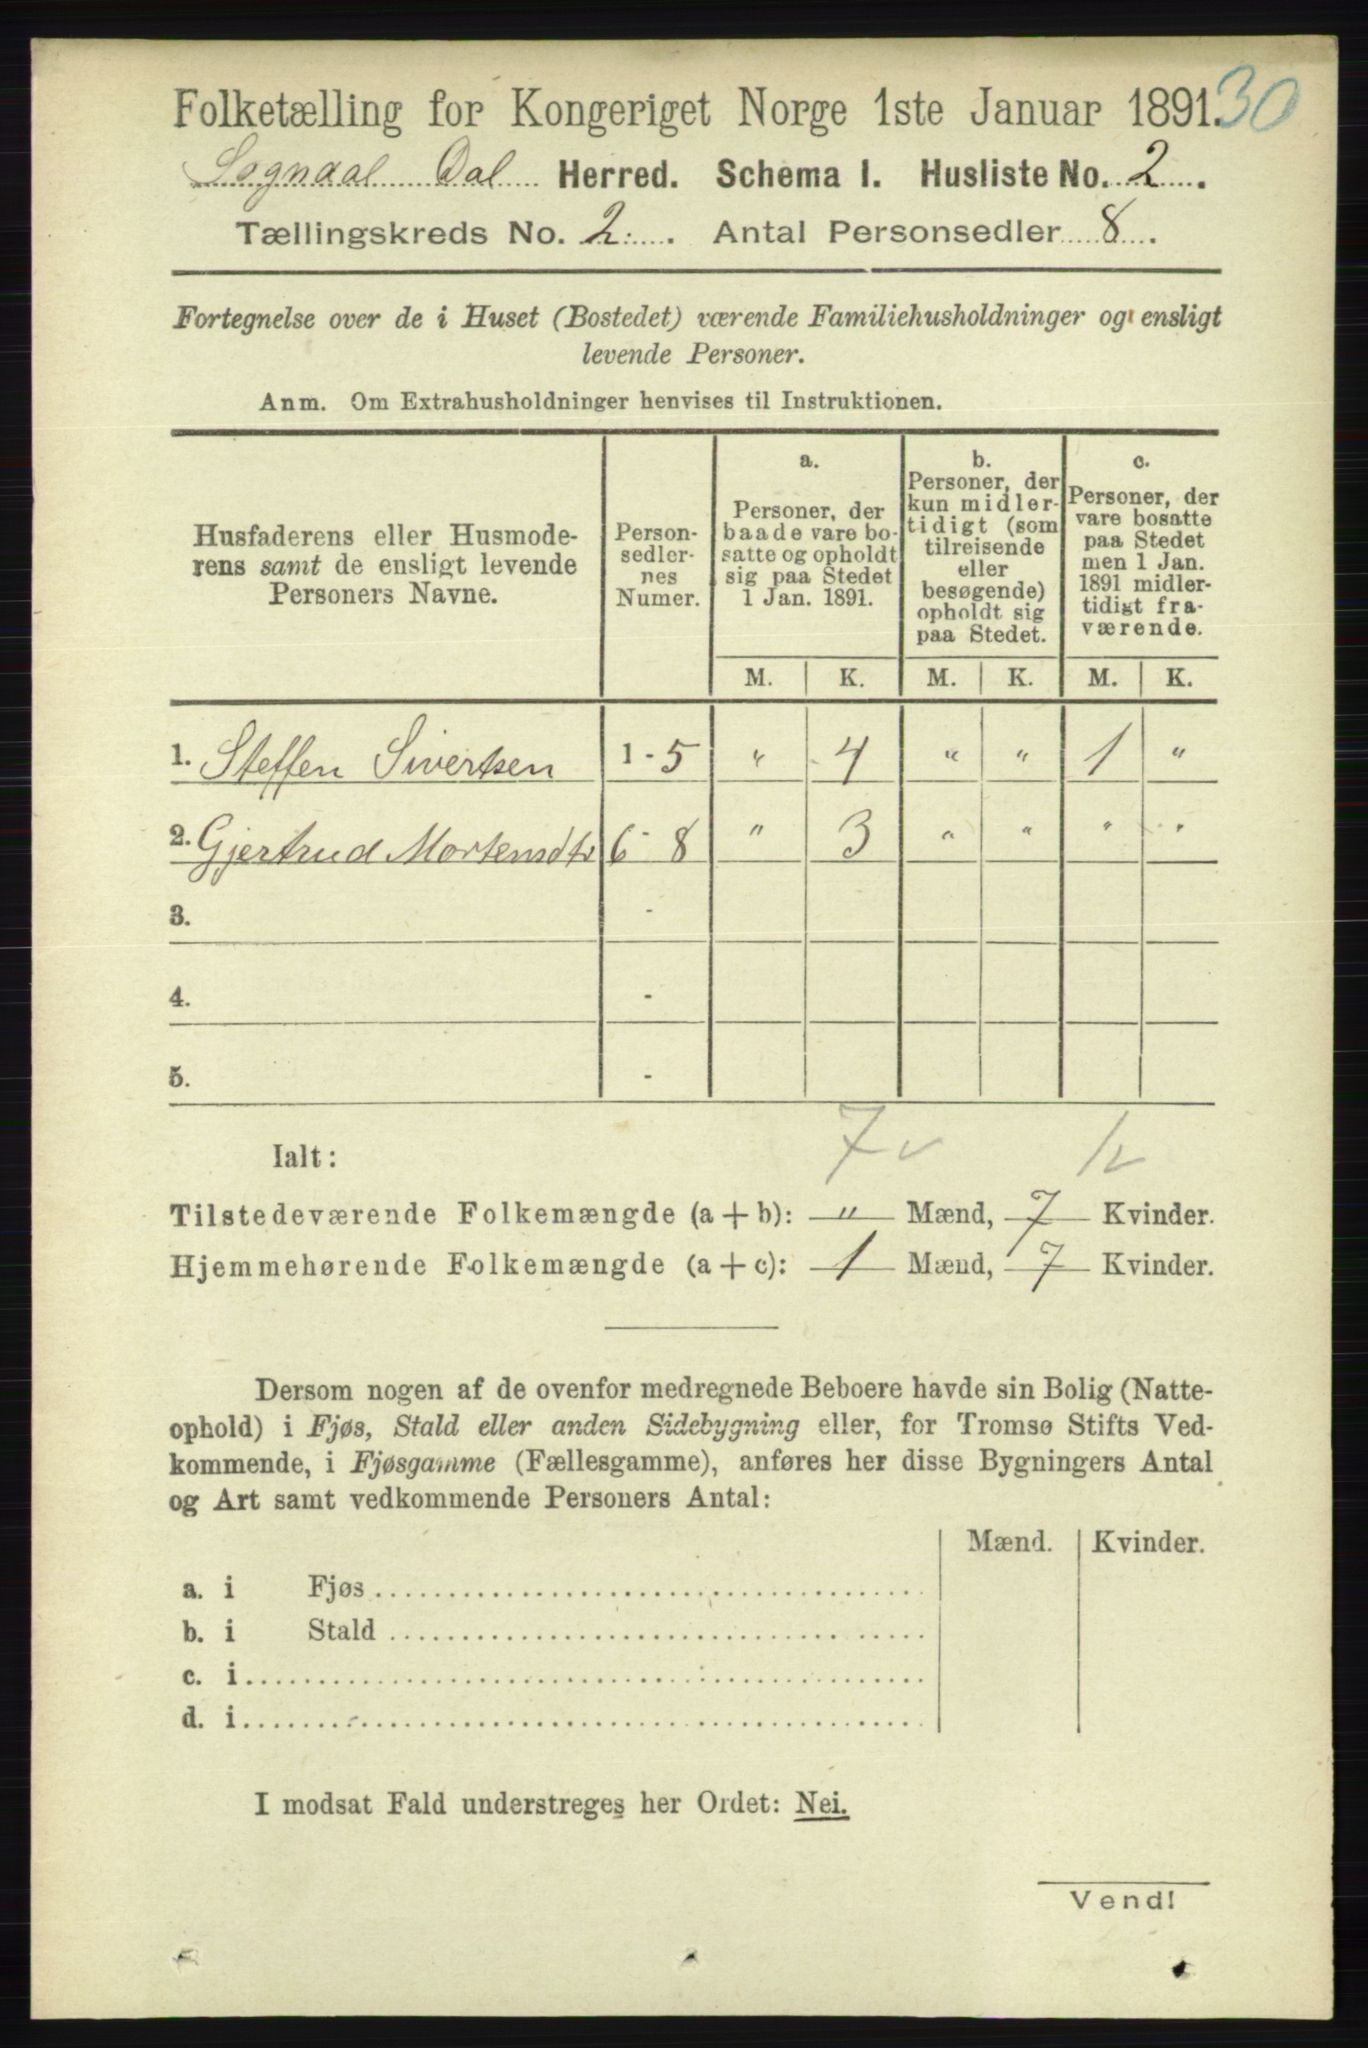 Folketælling for Kongeriget Norge 1ste Januar 1891. 30
Sogndal Dal Herred. Schema I. Husliste No. 2.
Tællingskreds No. 2. Antal Personsedler 8.
Fortegnelse over de i Huset (Bostedet) værende Familiehusholdninger og ensligt
levende Personer.
Anm. Om Extrahusholdninger henvises til Instruktionen.
Husfaderens eller Husmode-
rens samt de ensligt levende
Personers Navne.
Person-
sedler-
nes
Numer.
a.
Personer, der
baade vare bo-
satte og opholdt
sig paa Stedet
1 Jan. 1891.
b.
Personer, der
kun midler-
tidigt (som
tilreisende
eller
besøgende)
opholdt sig
paa Stedet.
c.
Personer, der
vare bosatte
paa Stedet
men 1 Jan.
1891 midler-
tidigt fra-
værende.
M. K. M. K. M. K.
1. Steffen Sivertsen 1 - 5 " 4 " " 1 "
2. Gjertrud Mortensdtr 6 - 8 " 3 " " " "
3. -
4. -
5. -
7 v 1 v
Ialt:
Tilstedeværende Folkemængde (a + b): " Mænd, 7 Kvinder.
Hjemmehørende Folkemængde (a + c): 1 Mænd, 7 Kvinder.
Dersom nogen af de ovenfor medregnede Beboere havde sin Bolig (Natte-
ophold) i Fjøs, Stald eller anden Sidebygning eller, for Tromsø Stifts Ved-
kommende, i Fjøsgamme (Fællesgamme), anføres her disse Bygningers Antal
og Art samt vedkommende Personers Antal:
Mænd. Kvinder.
a. i Fjøs
b. i Stald
c. i
d. i
I modsat Fald understreges her Ordet: Nei.
Vend!